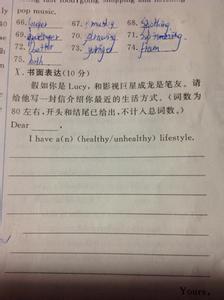 pop music.
66. 67. 68.
69. 70. drawing 71. swimming
72. 73. 74. from
75. both
X. 书面表达(10 分)
假如你是 Lucy，和影视巨星成龙是笔友。请
给他写一封信介绍你最近的生活方式。(词数为
80 左右，开头和结尾已给出，不计入总词数。)
Dear ______,
I have a(n) (healthy/unhealthy) lifestyle.
Yours,